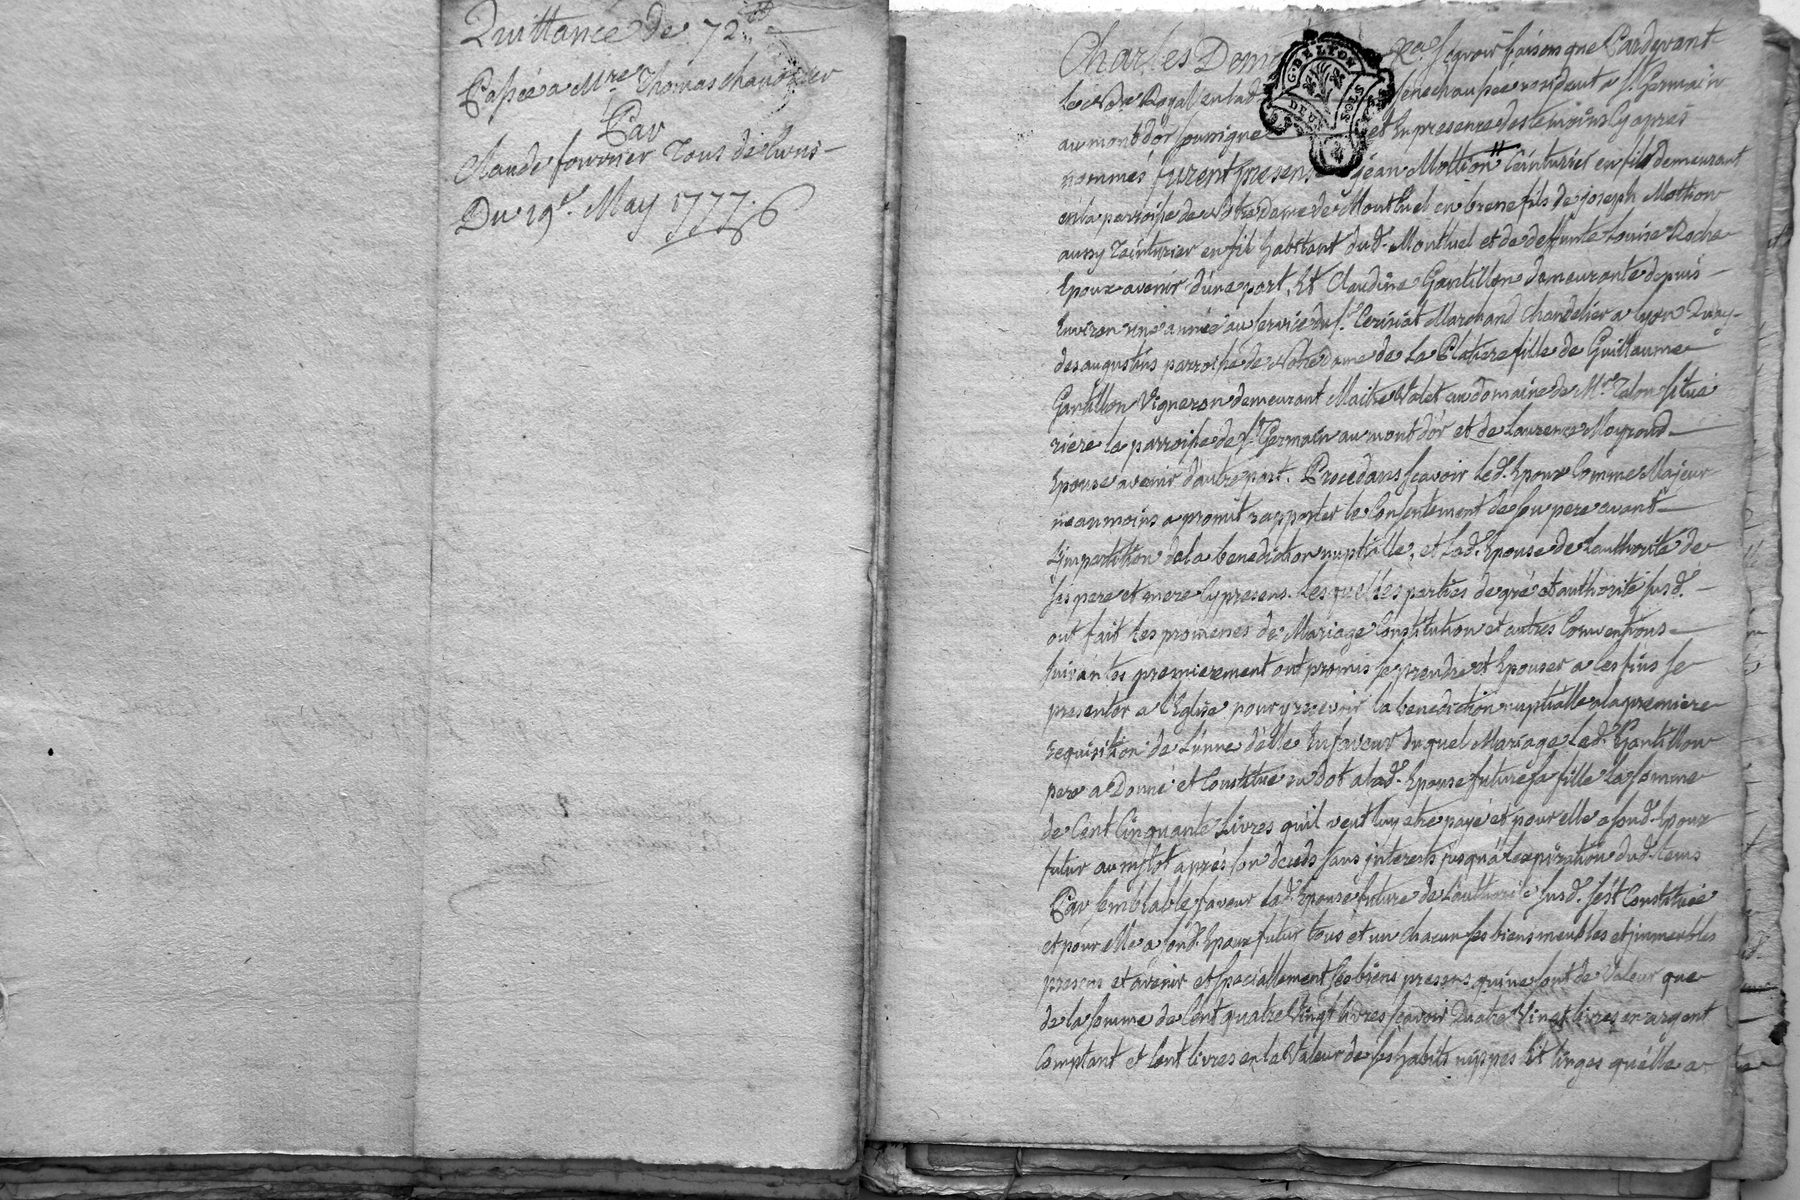 Quittance de 72#
Passée a Mre. Thomas
Par
Claude fournier Tous de
Du 19e. May 1777.
Charles Dem scavoir faisons que Pardevant
Le Nre Royal en lad. senechaussée residant a st. Germain
au mont d'or soussigné et En presence des temoins Cy après
nommés furent presens jean Mothion teinturier en fil demeurant
en la parroisse de Notre dame de Montluel en brene fils de joseph Mothion
aussy teinturier en fil habitant dud. Montluel et de deffunte Louise Roche
Epoux avenir d'une part, Et Claudine Gantillon demeurante depuis
Environ une année au service du sr. Cerisiat Marchand Chandelier a Lyon Quay
des augustins parroisse de Notre Dame de La Platiere fille de Guillaume
Gantillon Vigneron demeurant Maitre Valet au domaine de Mr. Talon situé
riere la parroisse de st. Germain au mont d'or et de Laurence Mogrond
Epouse avenir d'autre part. Procedans scavoir led. Epoux Comme Majeur
neanmoins a promit rapporter le Consentement de son pere avant
L'impartition de la benediction nuptialle, et lad. Epouse de L'authorité de
ses pere et mere Cy presens. Lesquelles parties de gré et authorité susd.
ont fait les promesses de Mariage Constitution et autres Conventions
suivantes premierement ont promis se prendre et Epouser a ces fins se
presenter a l'Eglise pour y recevoir la benediction nuptialle a la premiere
requisition de L'unne d'elle En faveur duquel Mariage Led. Gantillon
pere a Donné et Constitué en dot a lad. Epouse future sa fille La somme
de Cent Cinquante Livres qu'il veut luy etre payé et pour elle a sond. Epoux
futur aussitot après son decéds sans interests jusqu'a l'expiration dud. tems
Par semblable faveur Lad. Epouse future de L'authorité susd. s'est Constituée
et pour elle a sond. Epoux futur tous et un chacun ses biens meubles et immeubles
presens et avenir et speciallement ses biens presens qui ne sont de Valeur que
de la somme de Cent quatre Vingt livres scavoir Quatre Vingt livres en argent
Comptant et Cent livres en la Valeur de ses habits nippes et linges qu'elle a